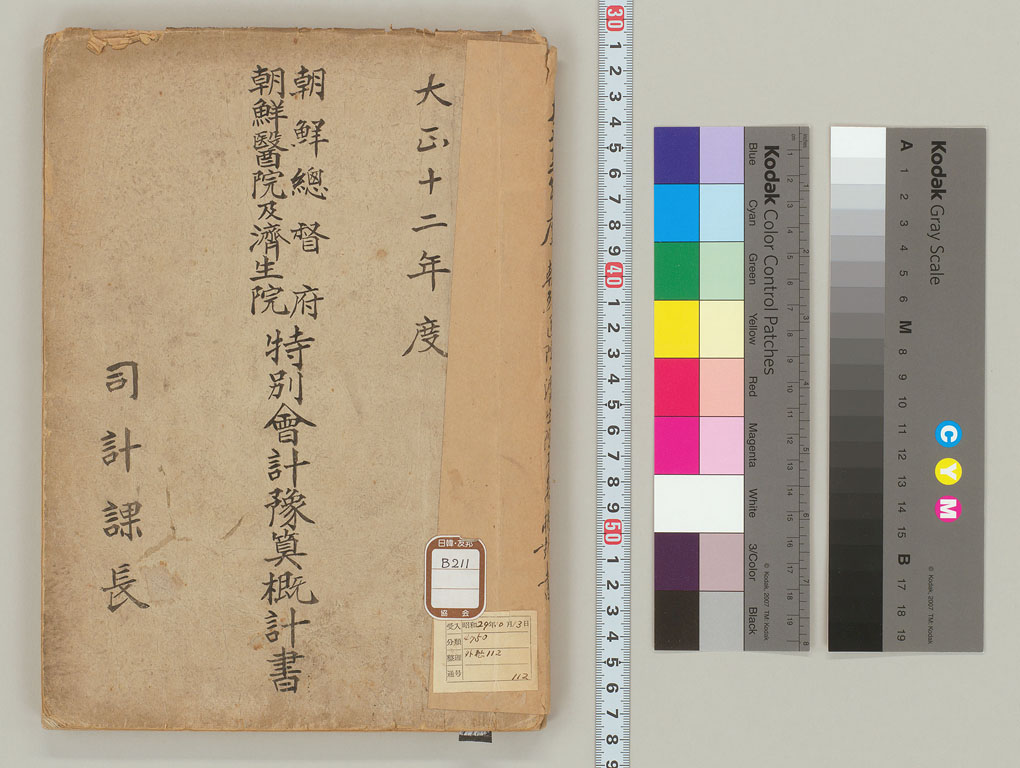 大正十二年度
朝鮮總督府
朝鮮醫院及濟生院
特別會計豫算概計書
司計課長
日韓・友邦
B211
協会
受入 昭和29年10月13日
分類 4750
整理
番号
112
30 1 2 3 4 5 6 7 8 9 40 1 2 3 4 5 6 7 8 9 50 1 2 3 4 5 6 7 8 9
Kodak Color Control Patches
Blue Cyan Green Yellow Red Magenta White 3/Color Black
© Kodak, 2007 TM: Kodak
Kodak Gray Scale
C Y M
A 1 2 3 4 5 6 M 8 9 10 11 12 13 14 15 B 17 18 19
© Kodak, 2007 TM: Kodak